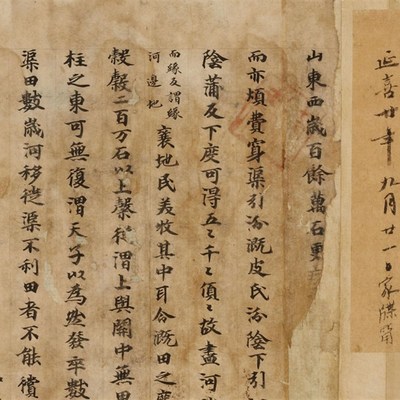 延喜廿年九月廿一日家牒
山東西歲百餘萬石更
而亦煩費穿渠引汾溉皮氏汾陰下引
陰蒲反下度可得五〻千〻頃〻故盡河
而緣反謂緣
河邊地
襄地民茭牧其中耳今溉田之度
穀穀二百万石以上槃從渭上與關中無
柱之東可無復渭天子以為然發卒數
渠田數歲河移徙渠不利田者不能償